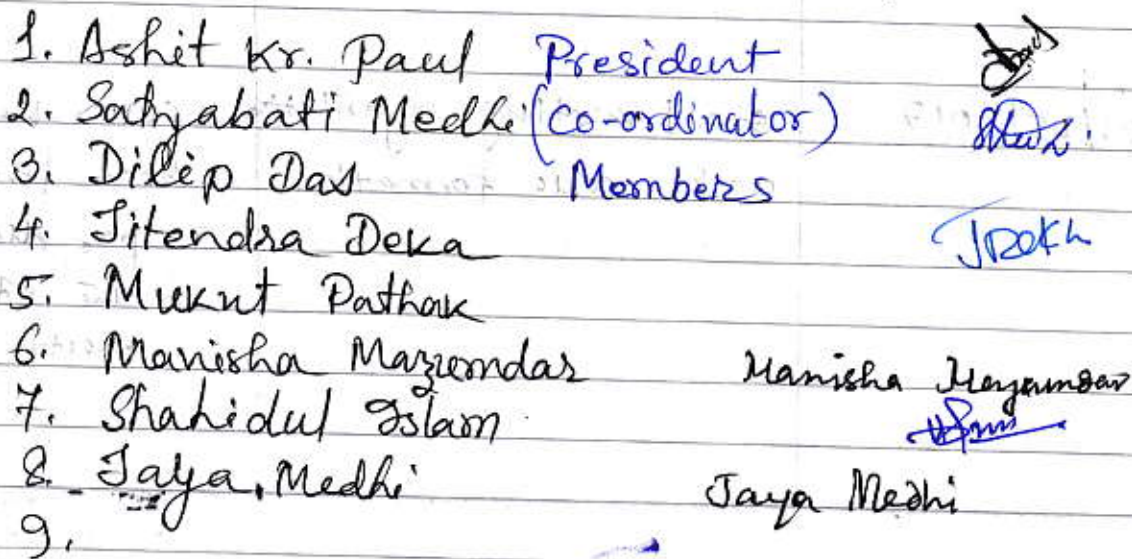 1. Ashit Kr. Paul President
2. Satyabati Medhi (Co-ordinator)
3. Dilip Das Members
4. Jitendra Deka
5. Mukut Pathak
6. Manisha Mazumdar Manisha Mazumdar
7. Shahidul Islam
8. Jaya Medhi Jaya Medhi
9.